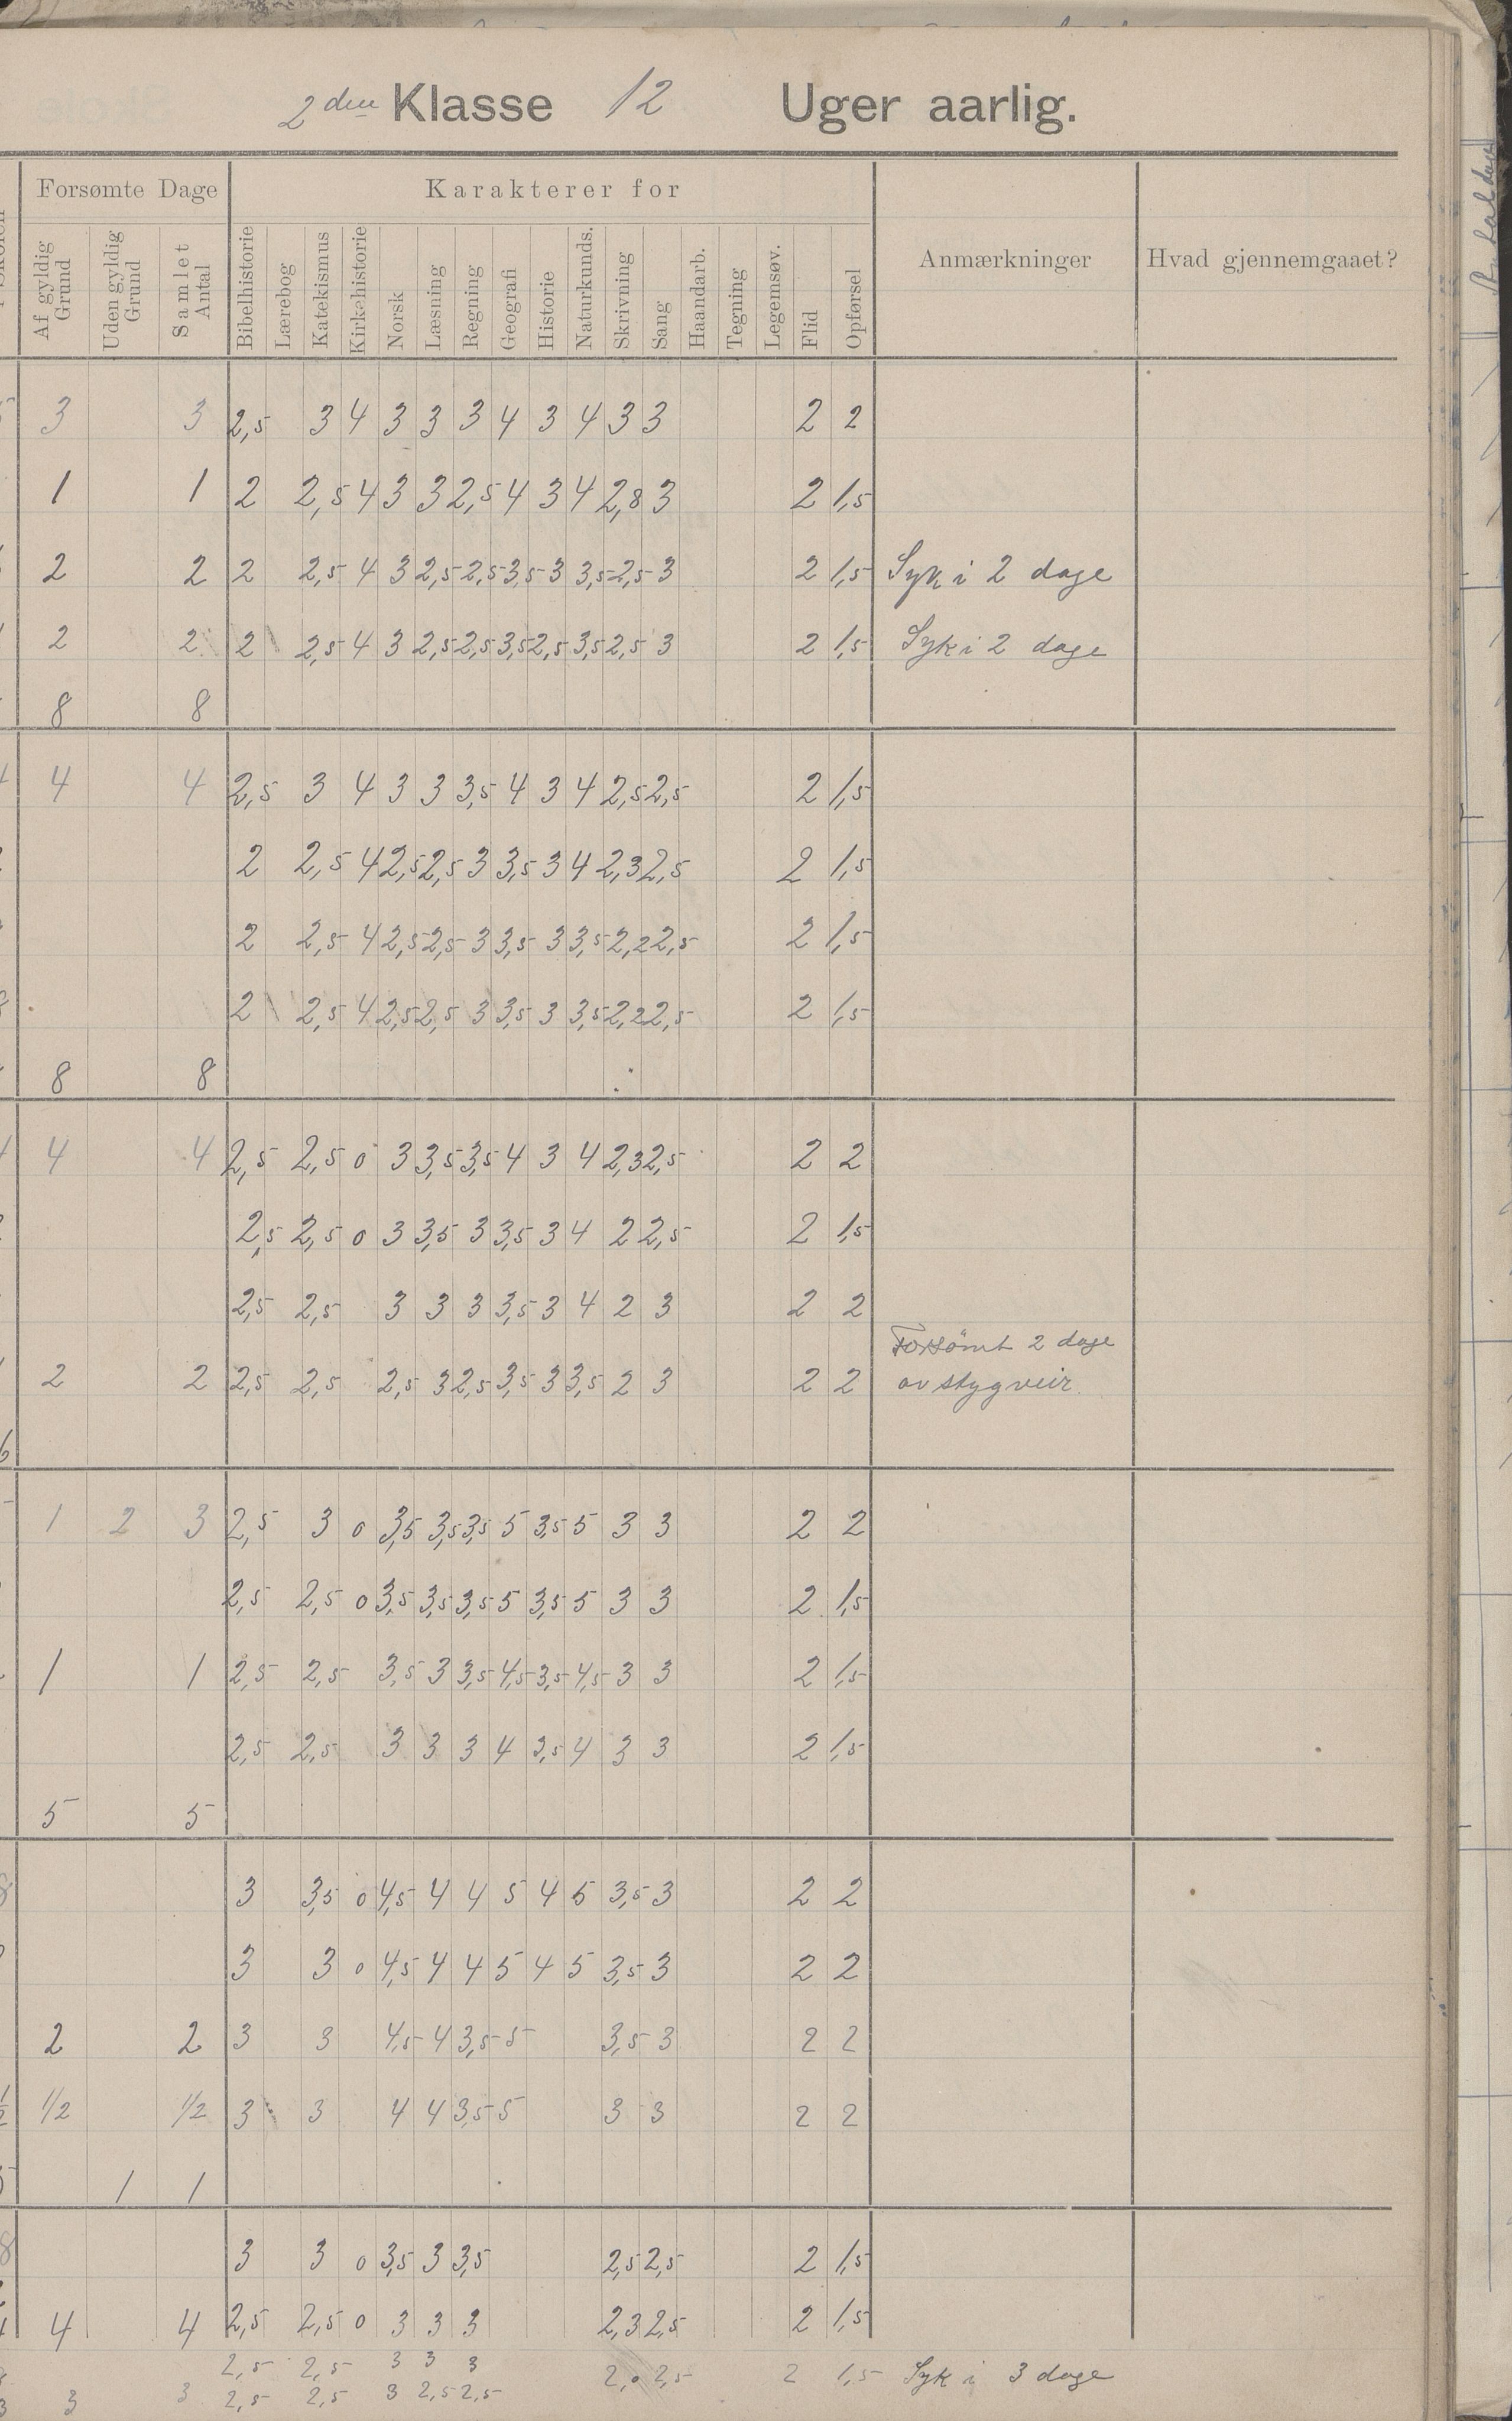 2den Klasse 12 Uger aarlig.
Forsømte Dage Karakterer for
Af gyldig Grund Uden gyldig Grund Samlet Antal Bibelhistorie Lærebog Katekismus Kirkehistorie Norsk Læsning Regning Geografi Historie Naturkunds. Skrivning Sang Haandarb. Tegning Legemsøv. Flid Opførsel Anmærkninger Hvad gjennemgaaet?
3 3 2,5 3 4 3 3 3 4 3 4 3 3 2 2
1 1 2 2,5 4 3 3 2,5 4 3 4 2,8 3 2 1,5
2 2 2 2,5 4 3 2,5 2,5 3,5 3 3,5 2,5 3 2 1,5 Syk i 2 dage
2 2 2 2,5 4 3 2,5 2,5 3,5 2,5 3,5 2,5 3 2 1,5 Syk i 2 dage
8 8
4 4 2,5 3 4 3 3 3,5 4 3 4 2,5 2,5 2 1,5
2 2,5 4 2,5 2,5 3 3,5 3 4 2,3 2,5 2 1,5
2 2,5 4 2,5 2,5 3 3,5 3 3,5 2,2 2,5 2 1,5
2 2,5 4 2,5 2,5 3 3,5 3 3,5 2,2 2,5 2 1,5
8 8
4 4 2,5 2,5 0 3 3,5 3,5 4 3 4 2,3 2,5 2 2
2,5 2,5 0 3 3,5 3 3,5 3 4 2 2,5 2 1,5
2,5 2,5 3 3 3 3,5 3 4 2 3 2 2
Forsömt 2 dage
2 2 2,5 2,5 2,5 3 2,5 3,5 3 3,5 2 3 2 2 av stygveir.
1 2 3 2,5 3 0 3,5 3,5 3,5 5 3,5 5 3 3 2 2
2,5 2,5 0 3,5 3,5 3,5 5 3,5 5 3 3 2 1,5
1 1 2,5 2,5 3,5 3 3,5 4,5 3,5 4,5 3 3 2 1,5
2,5 2,5 3 3 3 4 3,5 4 3 3 2 1,5
5 5
3 3,5 0 4,5 4 4 5 4 5 3,5 3 2 2
3 3 0 4,5 4 4 5 4 5 3,5 3 2 2
2 2 3 3 4,5 4 3,5 5 3,5 3 2 2
1/2 1/2 3 3 4 4 3,5 5 3 3 2 2
1 1
3 3 0 3,5 3 3,5 2,5 2,5 2 1,5
4 4 2,5 2,5 0 3 3 3 2,3 2,5 2 1,5
2,5 2,5 3 3 3 2,0 2,5 2 1,5 Syk i 3 dage
3 3 2,5 2,5 3 2,5 2,5